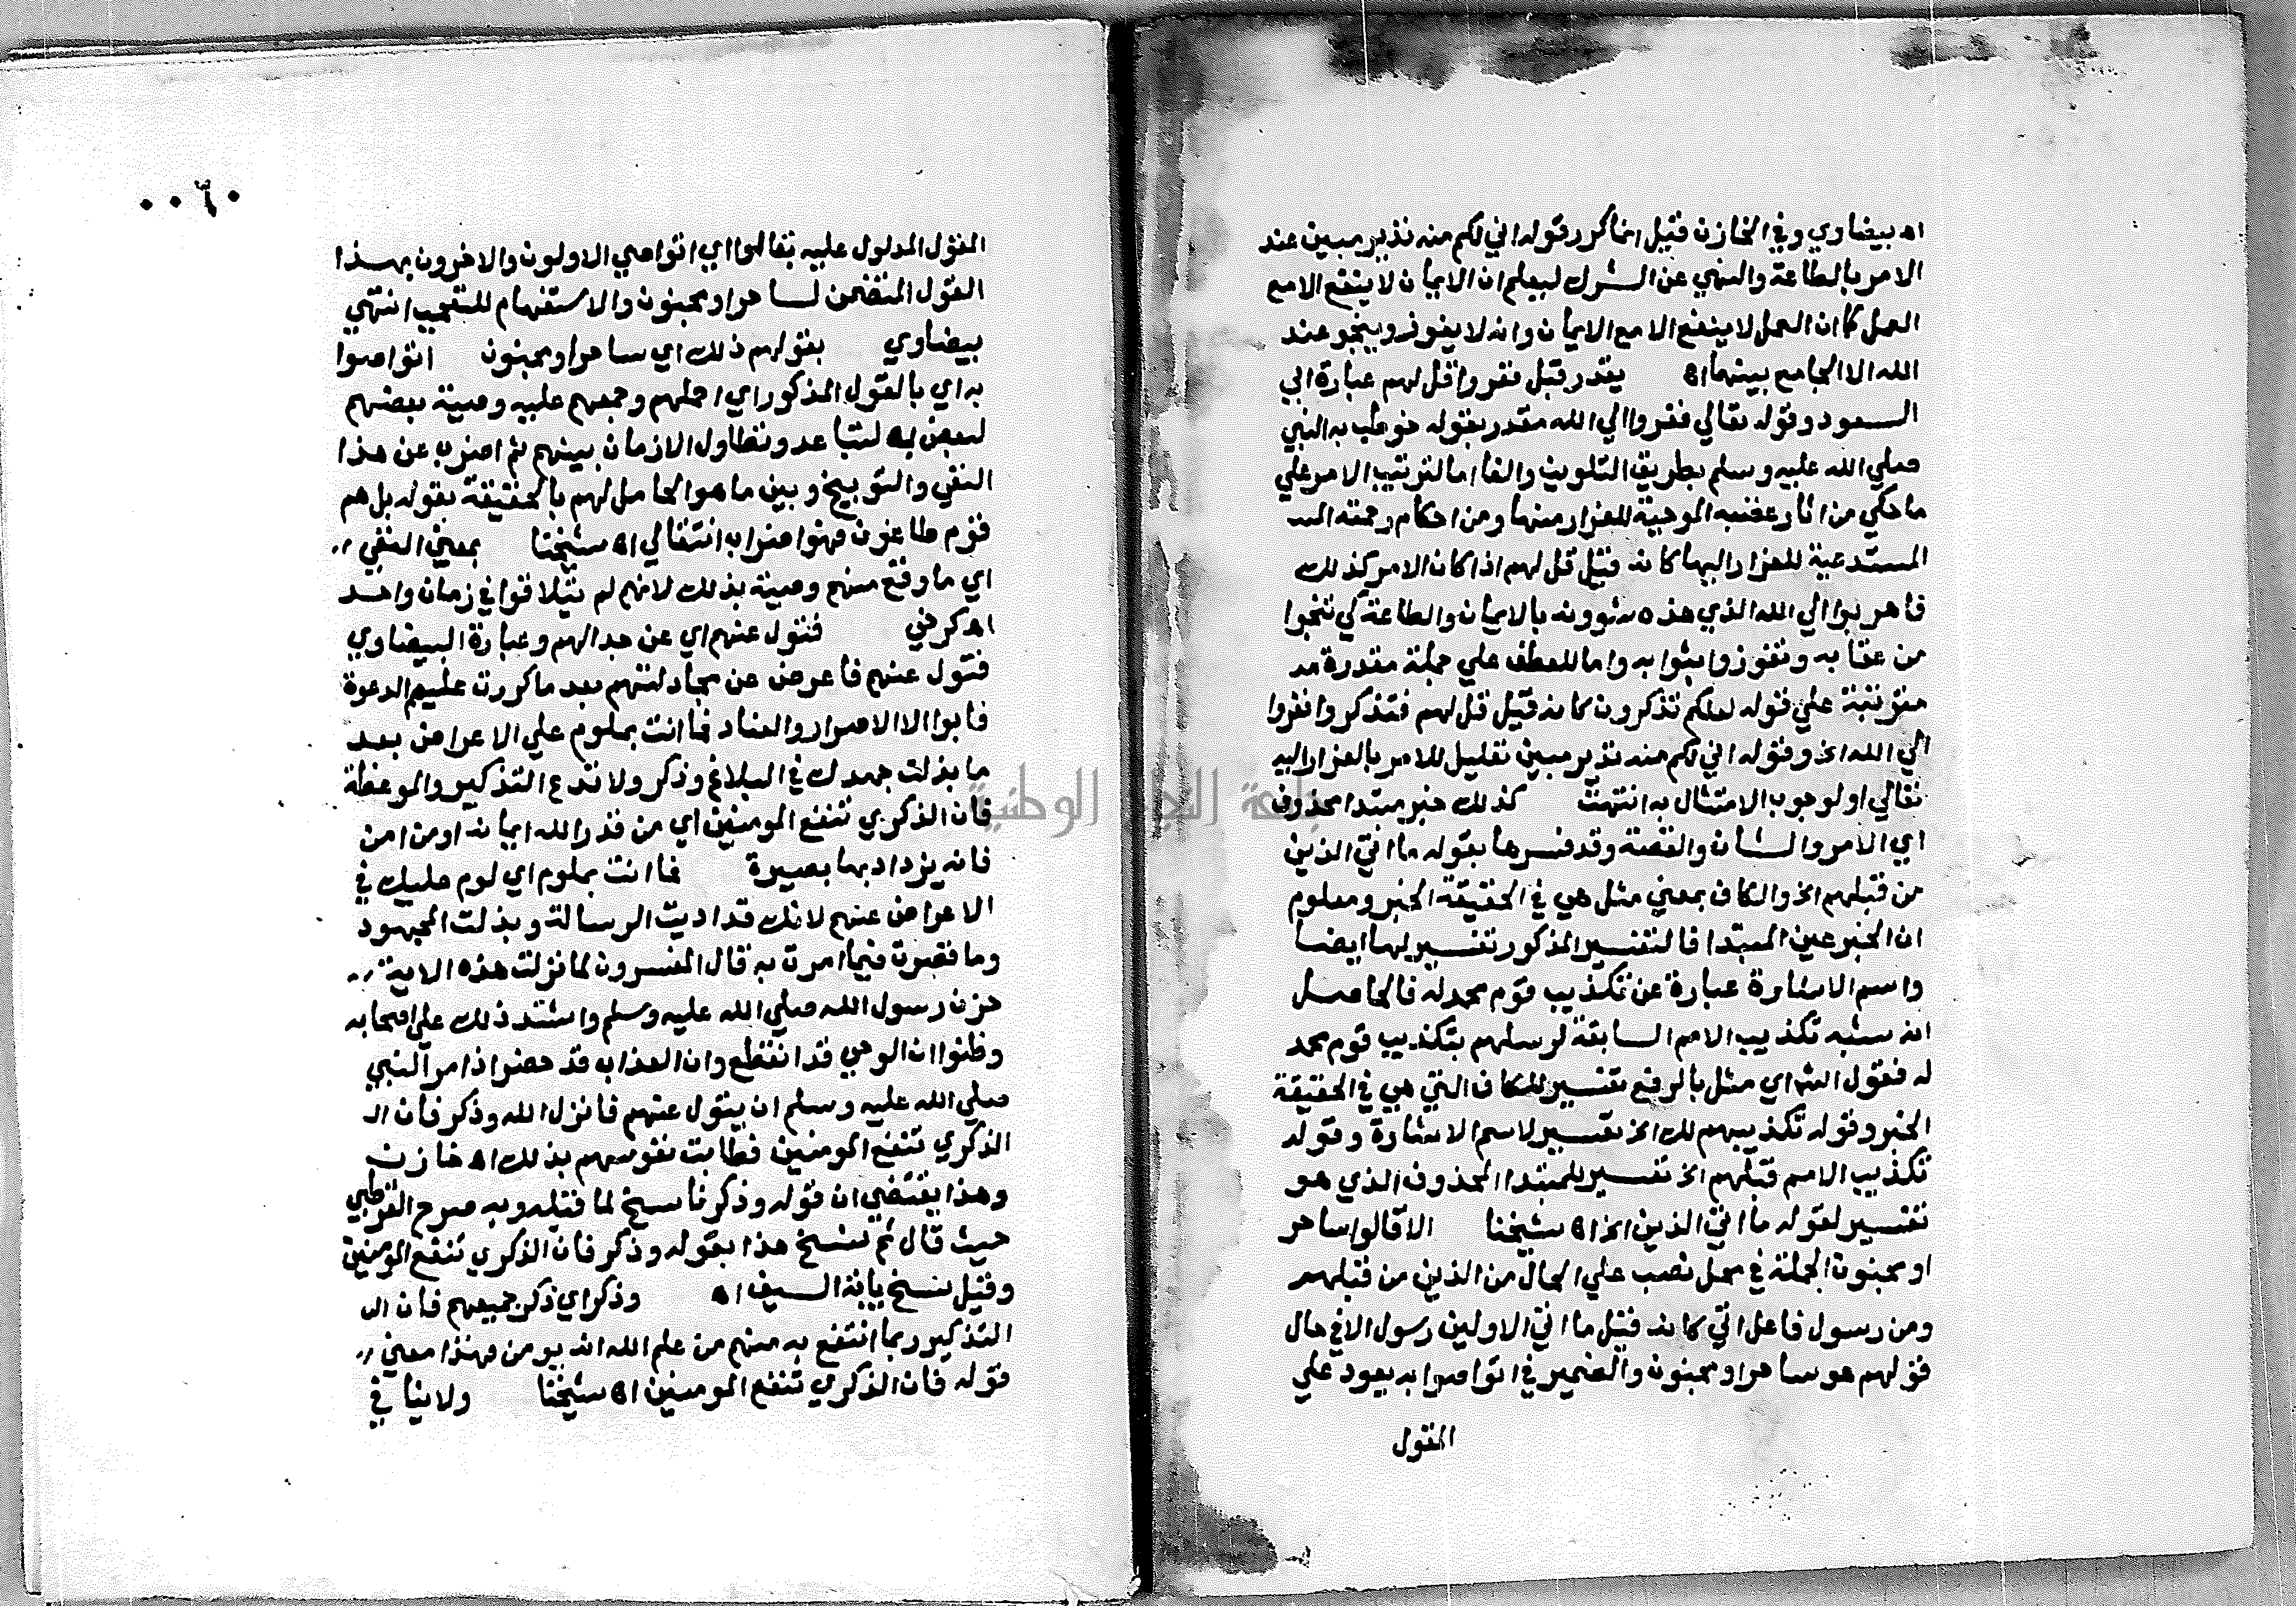 اه بيضاوي وفي الخازن قيل انما كرر قوله اني لكم منه نذير مبين عند
الامر بالطاعة والنهي عن الشرك ليعلم ان الايمان لا ينفع الا مع
العمل كما ان العمل لا ينفع الا مع الايمان وانه لا يفوز وينجو عند
الله الا الجامع بينهما اه يقدر قبل ففروا قل لهم عبارة ابي
السعود وقوله تعالي ففروا الي الله مقدر بقوله خوطب به النبي
صلي الله عليه وسلم بطريق التلوين والفا اما لترتيب الامر علي
ما حكي من اثار غضبه الموجبة للفرار منها ومن احكام رحمته المسـ
المستدعية للفرار اليها كانه قيل قل لهم اذا كان الامر كذلك
فاهربوا الي الله الذي هذه شوونه بالايمان والطاعة كي تنجوا
من عقابه وتفوزوا بثوابه واما للعطف علي جملة مقدرة مـد
مترتبة علي قوله لعلكم تذكرون كانه قيل قل لهم فتذكروا ففروا
الي الله الخ وقوله اني لكم منه نذير مبين تعليل للامر بالفرار اليه
تعالي او لوجوب الامتثال به انتهت كذلك خبر مبتدا محذوف
اي الامر والشان والقصة وقد فسرها بقوله ما اتي الذين
من قبلهم الخ والكاف بمعني مثل هي في الحقيقة الخبر ومعلوم
ان الخبر عين المبتدا فالتفسير المذكور تفسير لها ايضا
واسم الاشارة عبارة عن تكذيب قوم محمد له فالحاصل
انه شبه تكذيب الامم السابقة لرسلهم بتكذيب قوم محمد
له فقول الش اي مثل بالرفع تفسير للكاف التي هي في الحقيقة
الخبر وقوله تكذيبهم لك الخ تفسير لاسم الاشارة وقوله
تكذيب الامم قبلهم الخ تفسير للمبتدا المحذوف الذي هو
تفسير لقوله ما اتي الذين الخ اه شيخنا الا قالوا ساحر
او مجنون الجملة في محل نصب علي الحال من الذين من قبلهم
ومن رسول فاعل اتي كانه قيل ما اتي الاولين رسول الا في حال
قولهم هو ساحر او مجنون والضمير في اتواصوا به يعود علي
القول
٠٠٦٠
القول المدلول عليه بقالوا اي اتواصي الاولون والاخرون بهذا
القول المتضمن لساحر او مجنون والاستفهام للتعجب انتهي
بيضاوي بقولهم ذلك اي ساحر او مجنون اتواصوا
به اي بالقول المذكور اي احملهم وجمعهم عليه وصية بعضهم
لبعض به لتباعد وتطاول الازمان بينهم ثم اضرب عن هذا
النفي والتوبيخ وبين ما هو الحامل لهم بالحقيقة بقوله بل هم
قوم طاغون فهو اضراب انتقالي اه شيخنا بمعني النفي
اي ما وقع منهم وصية بذلك لانهم لم يتلاقوا في زمان واحد
اه كرخي فتول عنهم اي عن جدالهم وعبارة البيضاوي
فتول عنهم فاعرض عن مجادلتهم بعد ما كررت عليهم الدعوة
فابوا الا الاصرار والعناد فما انت بملوم علي الاعراض بعد
ما بذلت جهدك في البلاغ وذكر ولا تدع التذكير والموعظة
فان الذكري تنفع المومنين اي من قدر الله ايمانه او من امن
فانه يزداد بها بصيرة فما انت بملوم اي لوم عليك في
الاعراض عنهم لانك قد اديت الرسالة وبذلت المجهود
وما قصرت فيما امرت به قال المفسرون لما نزلت هذه الاية
حزن رسول الله صلي الله عليه وسلم واشتد ذلك علي اصحابه
وظنوا ان الوحي قد انقطع وان العذاب قد حضر اذ امر النبي
صلي الله عليه وسلم ان يتول عنهم فانزل الله وذكر فان الـ
الذكري تنفع المومنين فطابت نفوسهم بذلك اه خازن
وهذا يقتضي ان قوله وذكر ناسخ لما قبله وبه صرح القرطبي
حيث قال ثم نسخ هذا بقوله وذكر فان الذكري تنفع المومنين
وقيل نسخ باية السيف اه وذكر اي ذكر جميعهم فان الـ
التذكير ربما انتفع به منهم من علم الله انه يومن فهذا معني
قوله فان الذكري تنفع المومنين اه شيخنا ولاينا في
جامعة النجاح الوطنية